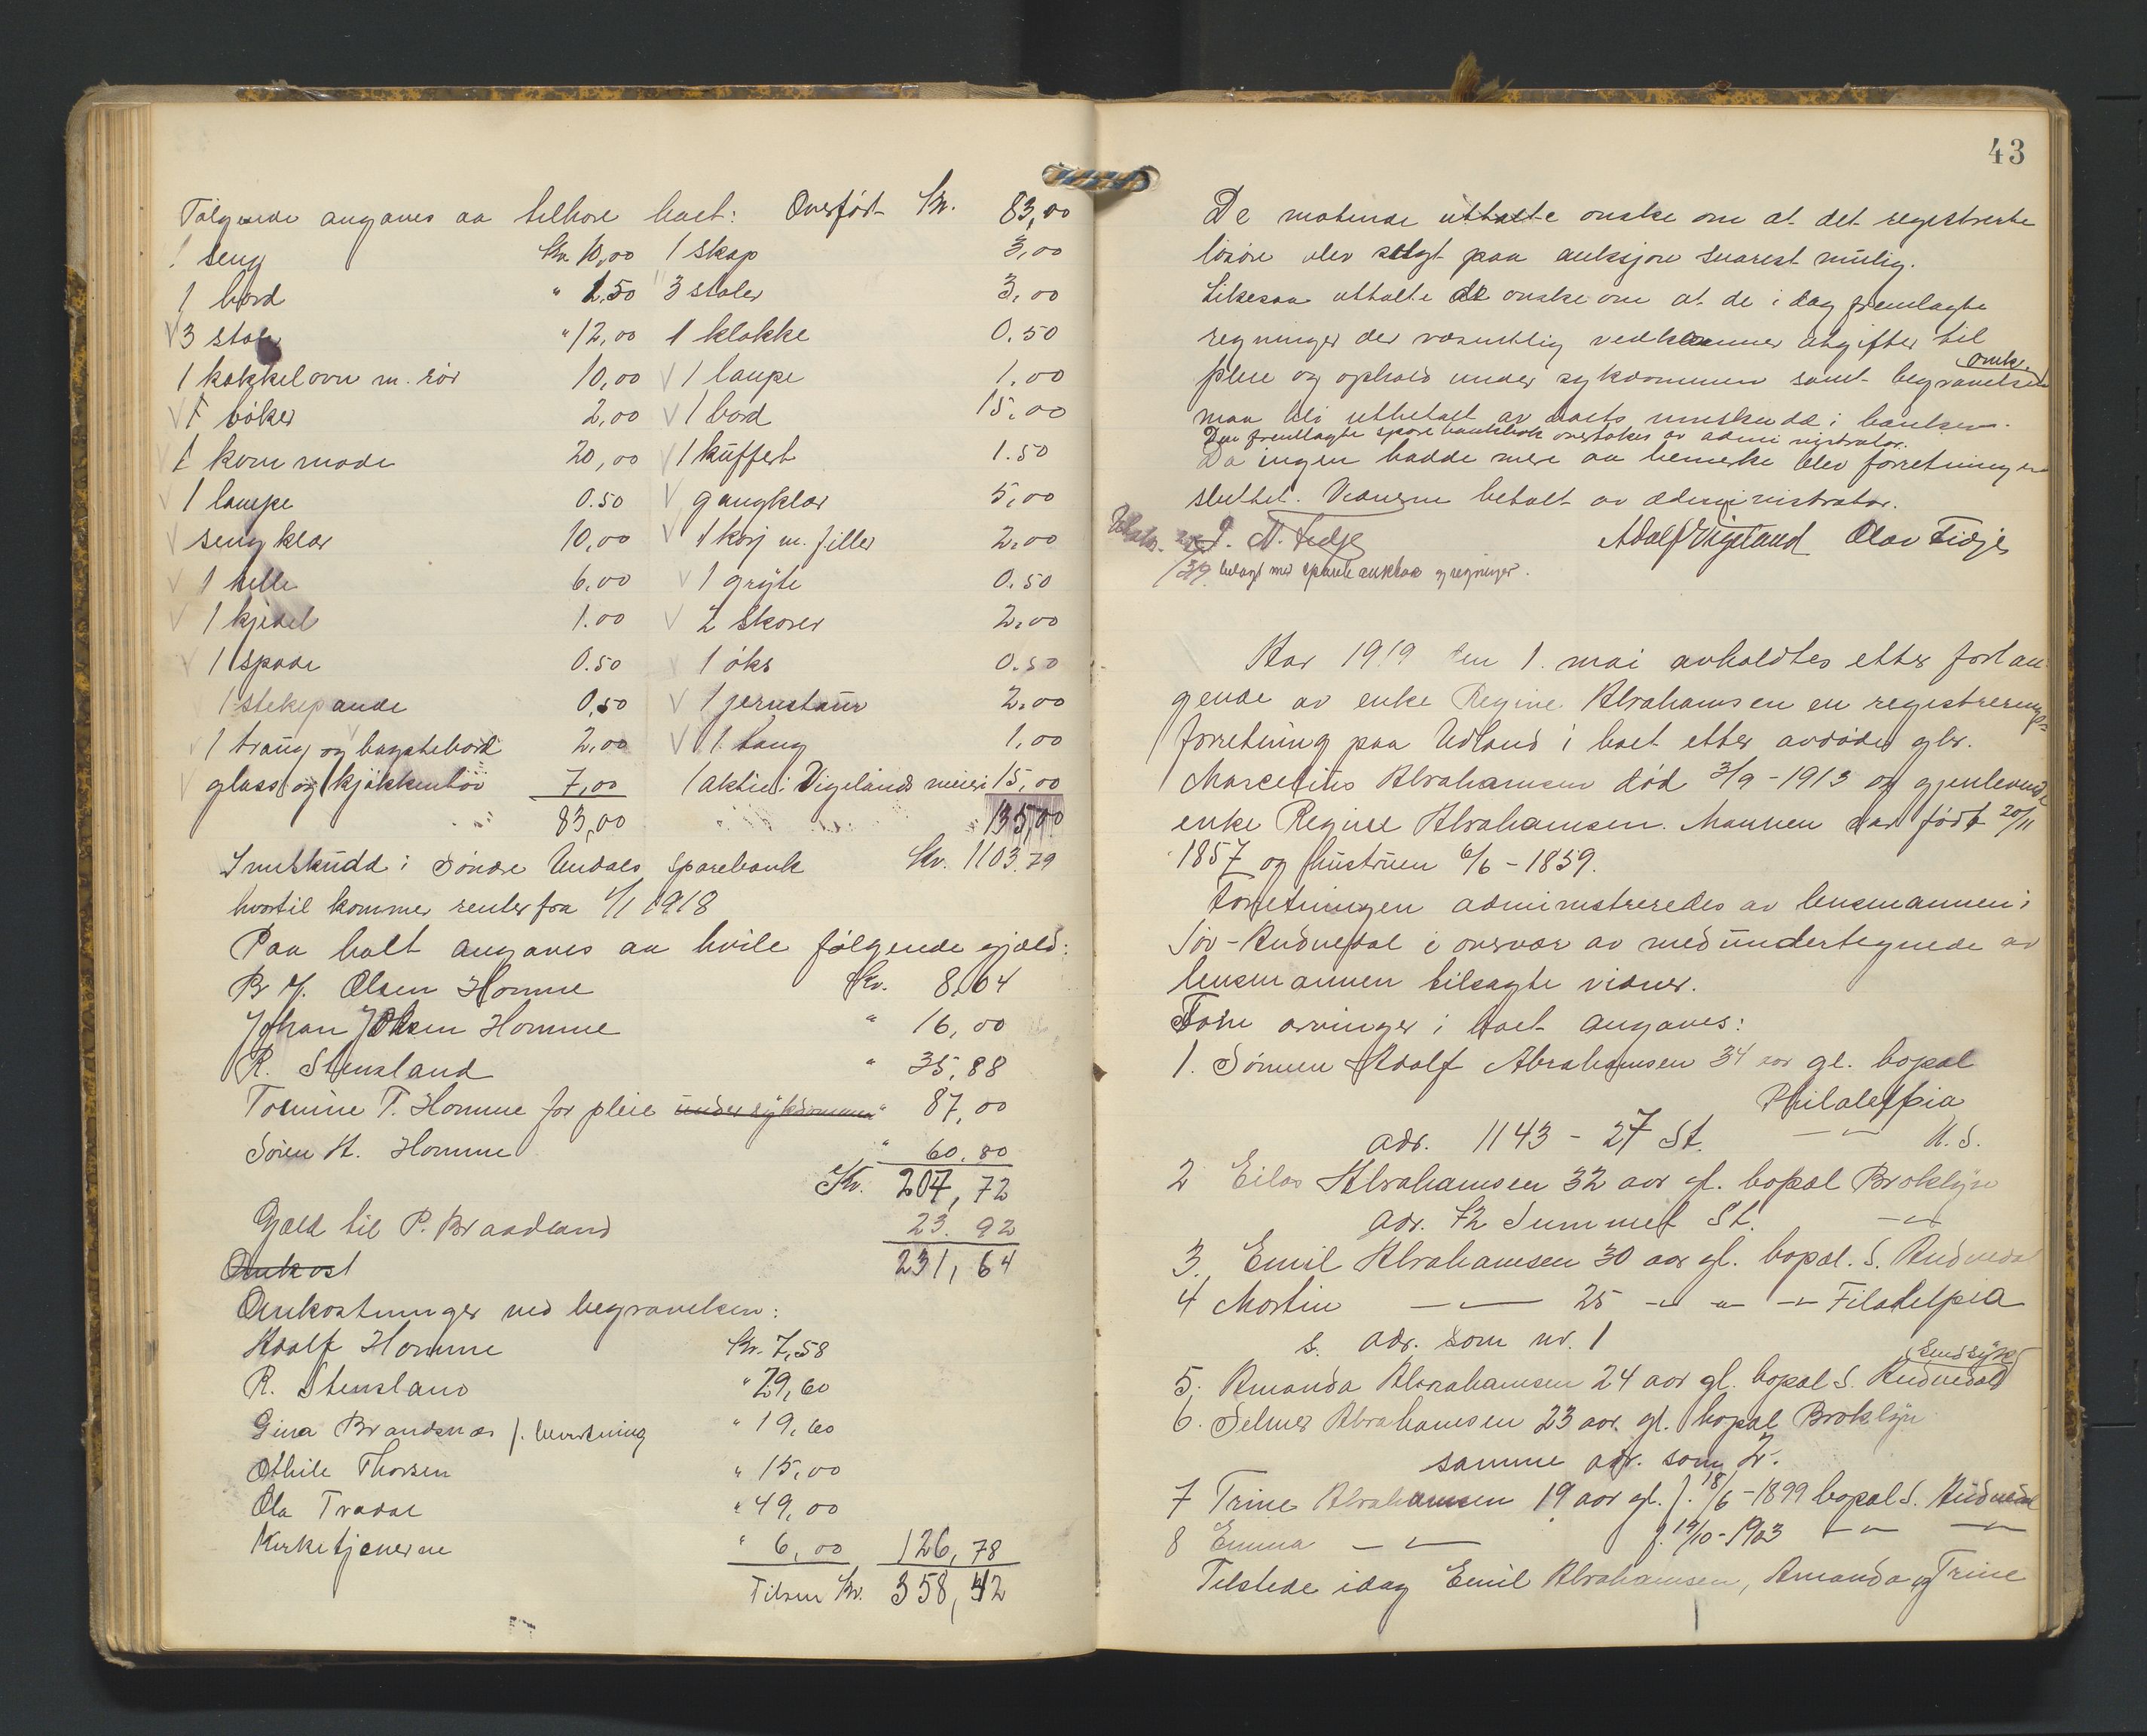 Følgende angaves aa tilhøre boet: Overført Kr. 83,00
1 seng Kr. 10,00 1 skap 3,00
1 bord " 1,50 3 stoler 3,00
3 stoler " 12,00 1 klokke 0.50
1 kakkelovn m. rör 10,00 1 lampe 1.00
bøker 2,00 1 bord 15,00
1 kommode 20,00 1 kuffert 1.50
1 lampe 0.50 gangklær 5,00
sengklær 10,00 1 korj m. filler 2,00
1 helle 6.00 1 gryte 0.50
1 kjedel 1.00 2 skorer 2,00
1 spade 0.50 1 øks 0.50
1 stekepande 0,50 1 jernstaur 2.00
1 traug og bagstebord 2,00 1 tang 1,00
glass og kjøkkentöi 7,00 1 aktie i Vigelands meieri 15,00
83,00 135,00
Innskudd i Søndre Undals sparebank Kr. 1103.79
hvortil kommer renter fra 1/1 1918
Paa boet angaves aa hvile følgende gjæld:
Olsen Homme Kr. 8,04
Johan Olsen Homme " 16,00
R. Stensland " 35,88
Tomine T. Homme for pleie under sykdommen " 87,00
Søren A. Homme " 60.80
Kr. 207,72
Gjæld til P. Braadland 23.92
Omkost 231,64
Omkostninger ved begravelsen:
Adolf Homme Kr. 7,58
R. Stensland " 29,60
Gina Brandsnes f. bevertning " 19,60
Othile Thorsen " 15,00
Ola Tradal " 49,00
Kirketjenerne " 6,00 126,78
Tilsm Kr. 358,42
43
De møtende uttalte ønske om at det registrerte
løsøre blev solgt paa auksjon snarest mulig.
Likesaa uttalte de ønske om at de i dag fremlagte
regninger der væsentlig vedkommer utgifter til
omk.
pleie og ophold under sykdommen samt begravelsen
maa bli utbetalt av boets innskudd i banken.
Den fremlagte sparebankbok overtokes av administrator.
Da ingen hadde mere aa bemerke blev forretningen
sluttet. Vidnerne betalt av administrator.
Adolf Vigeland Olav Tidje
belagt med og regninger.
Aar 1919 den 1. mai avholdtes etter forlan-
gende av enke Regine Abrahamsen en registrerings-
forretning paa Udland i boet etter avdøde gbr.
Marcelius Abrahamsen død 3/9-1913 og gjenlevende
enke Regine Abrahamsen. Mannen var født 20/11
1857 og hustruen 6/6-1859.
Forretningen administreredes av lensmannen i
Sør-Audnedal i overvær av medundertegnede av
lensmannen tilsagte vidner.
Som arvinger i boet angaves:
1. Sønnen Adolf Abrahamsen 34 aar gl. bopæl
Philadelfia
adr. 1143 - 27 St. — " — U. S.
2 Eilas Abrahamsen 32 aar gl. bopæl Broklyn
adr. 72 Summet St. — " —
3. Emil Abrahamsen 30 aar gl. bopæl. S. Audnedal
4 Mortin — " — 25 — " — " — " — Filadelpia
s. adr. som nr. 1
sindsyk
5. Amanda Abrahamsen 24 aar gl. bopæl S. Audnedal
6. Selmer Abrahamsen 23 aar. gl. bopæl Broklyn
samme adr. som 2.
7 Trine Abrahamsen 19 aar gl. f. 18/6-1899 bopæl S. Audnedal
8 Emma — " — f. 19/10-1903 — " — — " —
Tilstede idag Emil Abrahamsen, Amanda og Trine